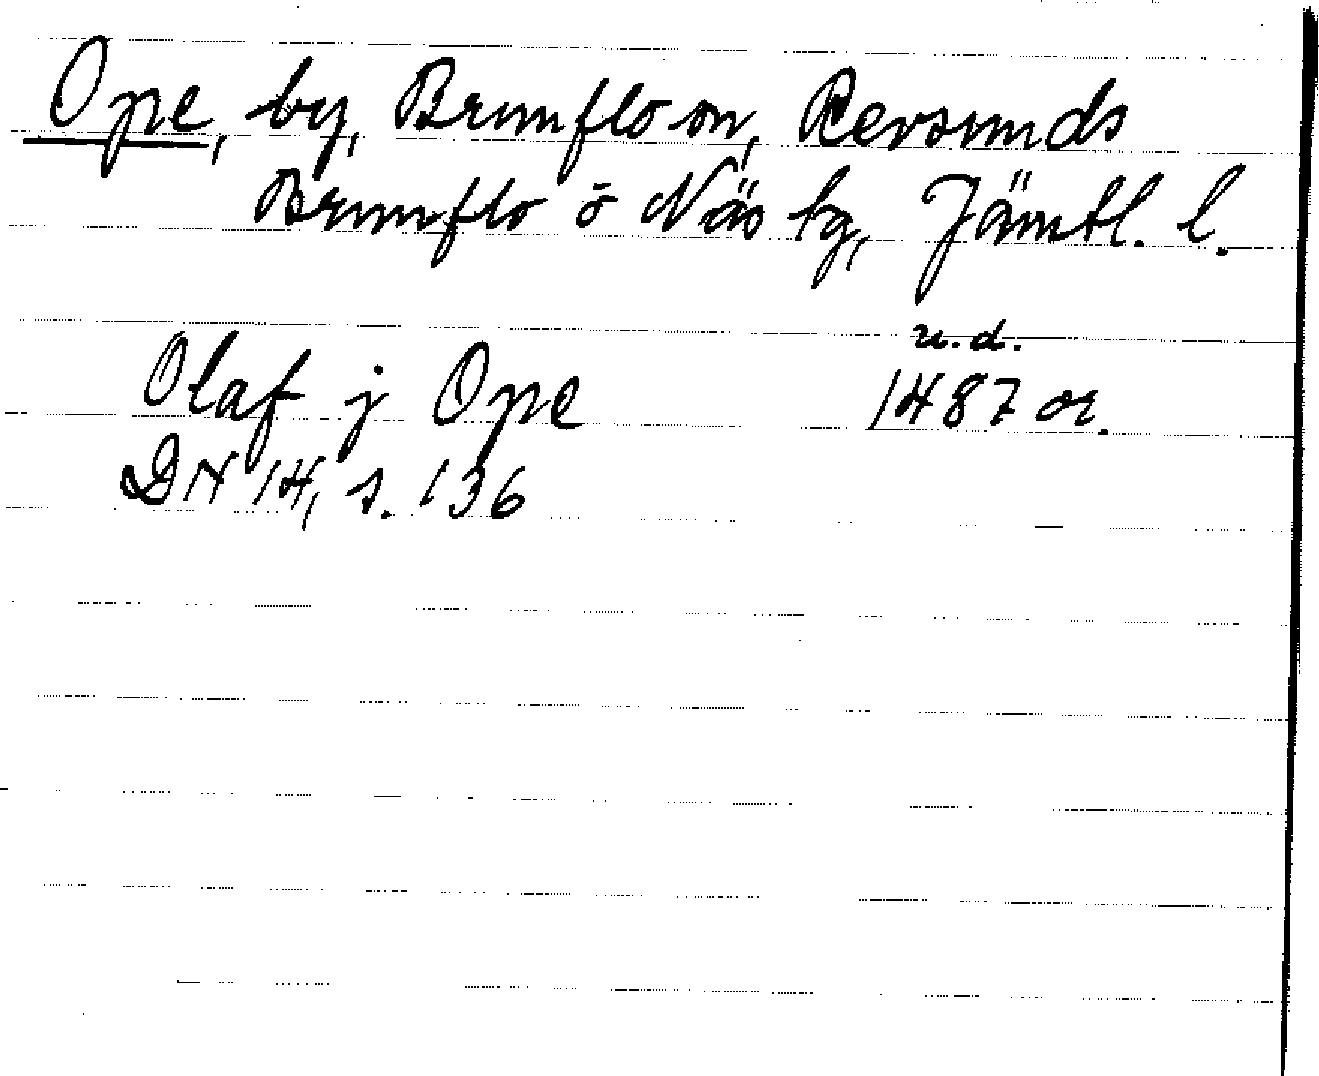 Ope, by, Brunflo sn, Revsunds
Brunflo o Näs tg, Jämtl. l.
u. d.
Olaf j Ope 1487 or.
DN 14, s. 136